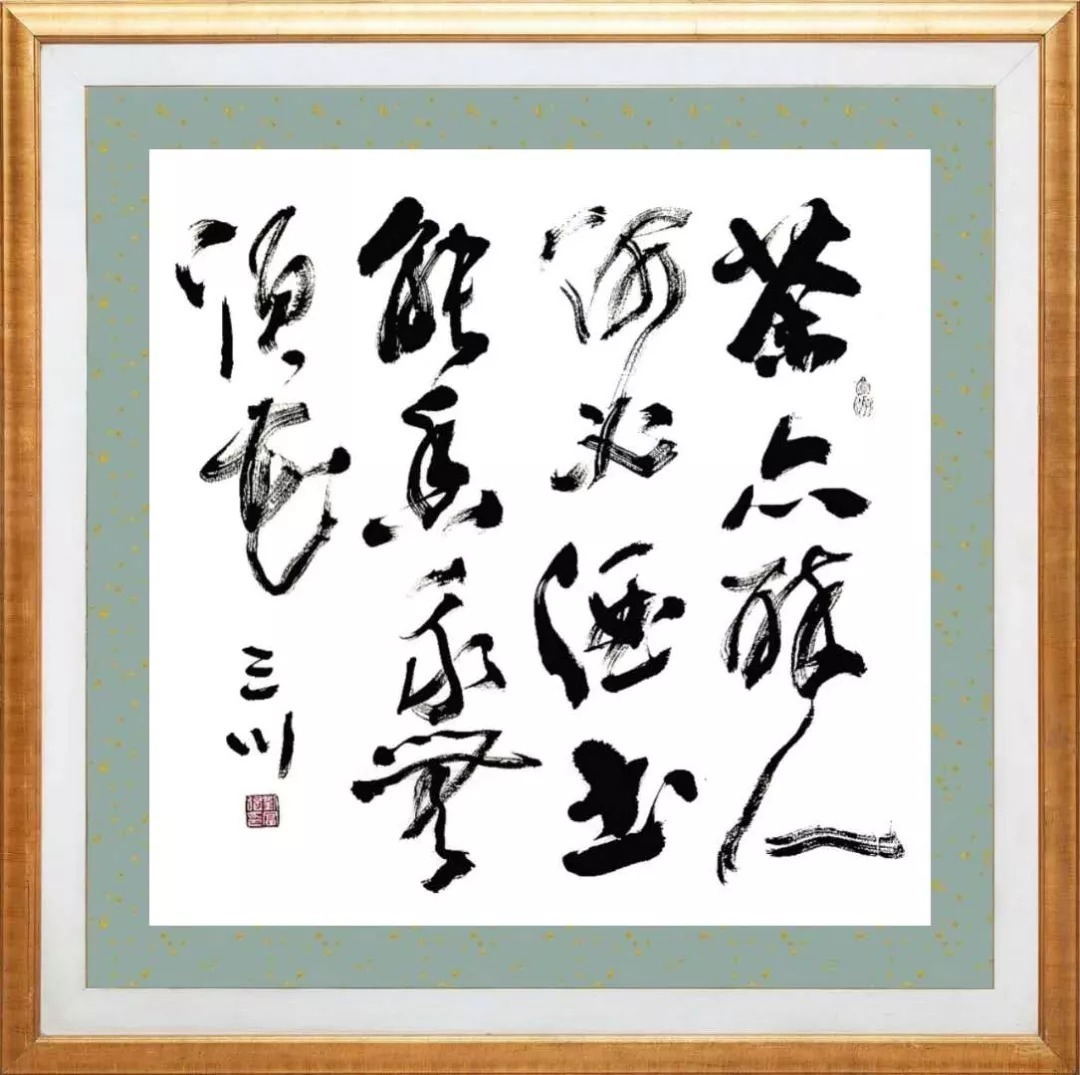 茶亦醉人
何必酒书
能香我无
须花
三川